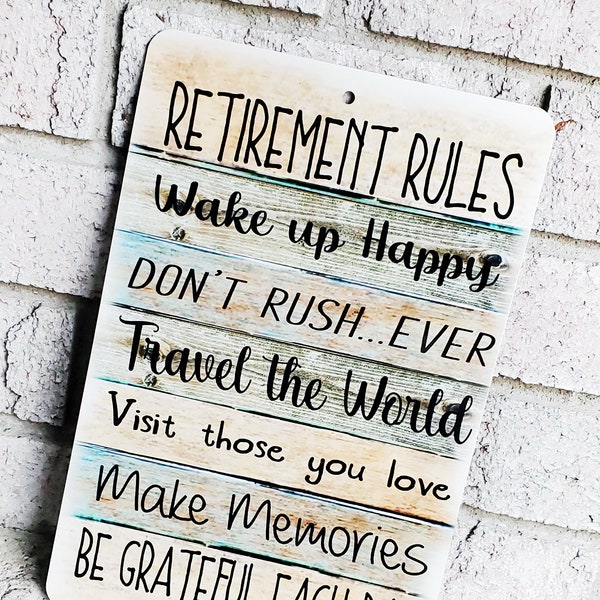 RETIREMENT RULES
Wake up Happy
DON'T RUSH...EVER
Travel the World
Visit those you love
Make Memories
BE GRATEFUL EACH